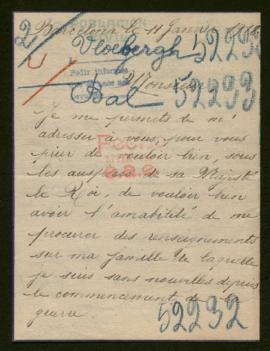 Barcelona le 11
Vloebergh 52293
Monsieur
Bal 52293
Je me permets de m'
adresser à vous, pour vous
prier de vouloir bien, sous
les auspices de sa Majesté
le Roi, de vouloir bien
avoir l'amabilité de me
procurer des renseignements
sur ma famille de laquelle
je suis sans nouvelles depuis
le commencement de la
guerre.
52292